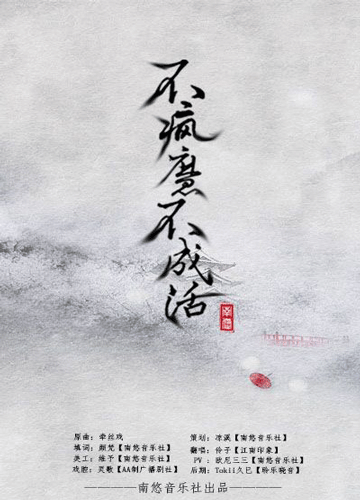 不疯魔不成活
南悠
原曲：牵丝戏
填词：颜梵【南悠音乐社】
美工：维予【南悠音乐社】
戏腔：灵歌【AA制广播剧社】
策划：凉溪【南悠音乐社】
翻唱：伶子【江南印象】
PV：欧尼三三【南悠音乐社】
后期：Tokil久巳【聆乐晓音】
南悠音乐社出品